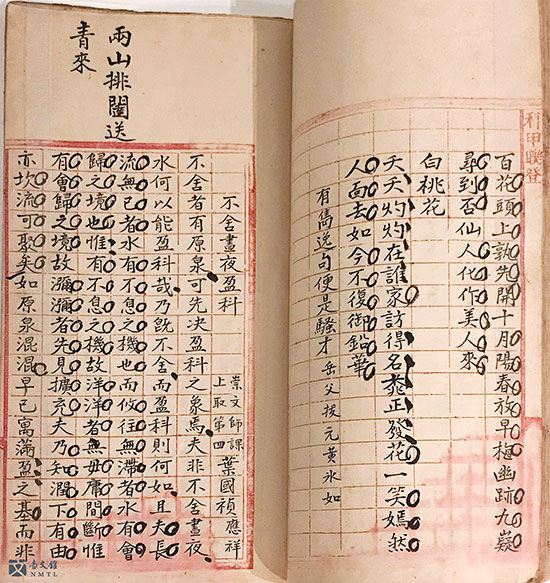 科甲聯登
百花頭上孰先開十月陽春放早梅幽跡九嶷
尋到否仙人化作美人來
白桃花
夭夭灼灼在誰家訪得名正發花一笑嫣然
人面去如今不復御鉛華
有雋逸句便是騷才 岳父拔元黃冰如
兩山排闥送
青來
不舍晝夜盈科
崇文師課
上取第四
葉國禎應祥
不舍者有原泉可先决盈科之象焉夫非不舍晝夜
水何以能盈科哉乃既不舍而盈科則何如且夫長
流無已者水有不息之機也而攸往無滯者水有會
歸之境也惟有不息之機故洋洋者無毋庸間斷惟
有會歸之境故瀰瀰者先見擴充夫乃知潤下有由
亦坎流可聚矣如原泉混混早已寓滿盈之基而非
台文館
NMTL